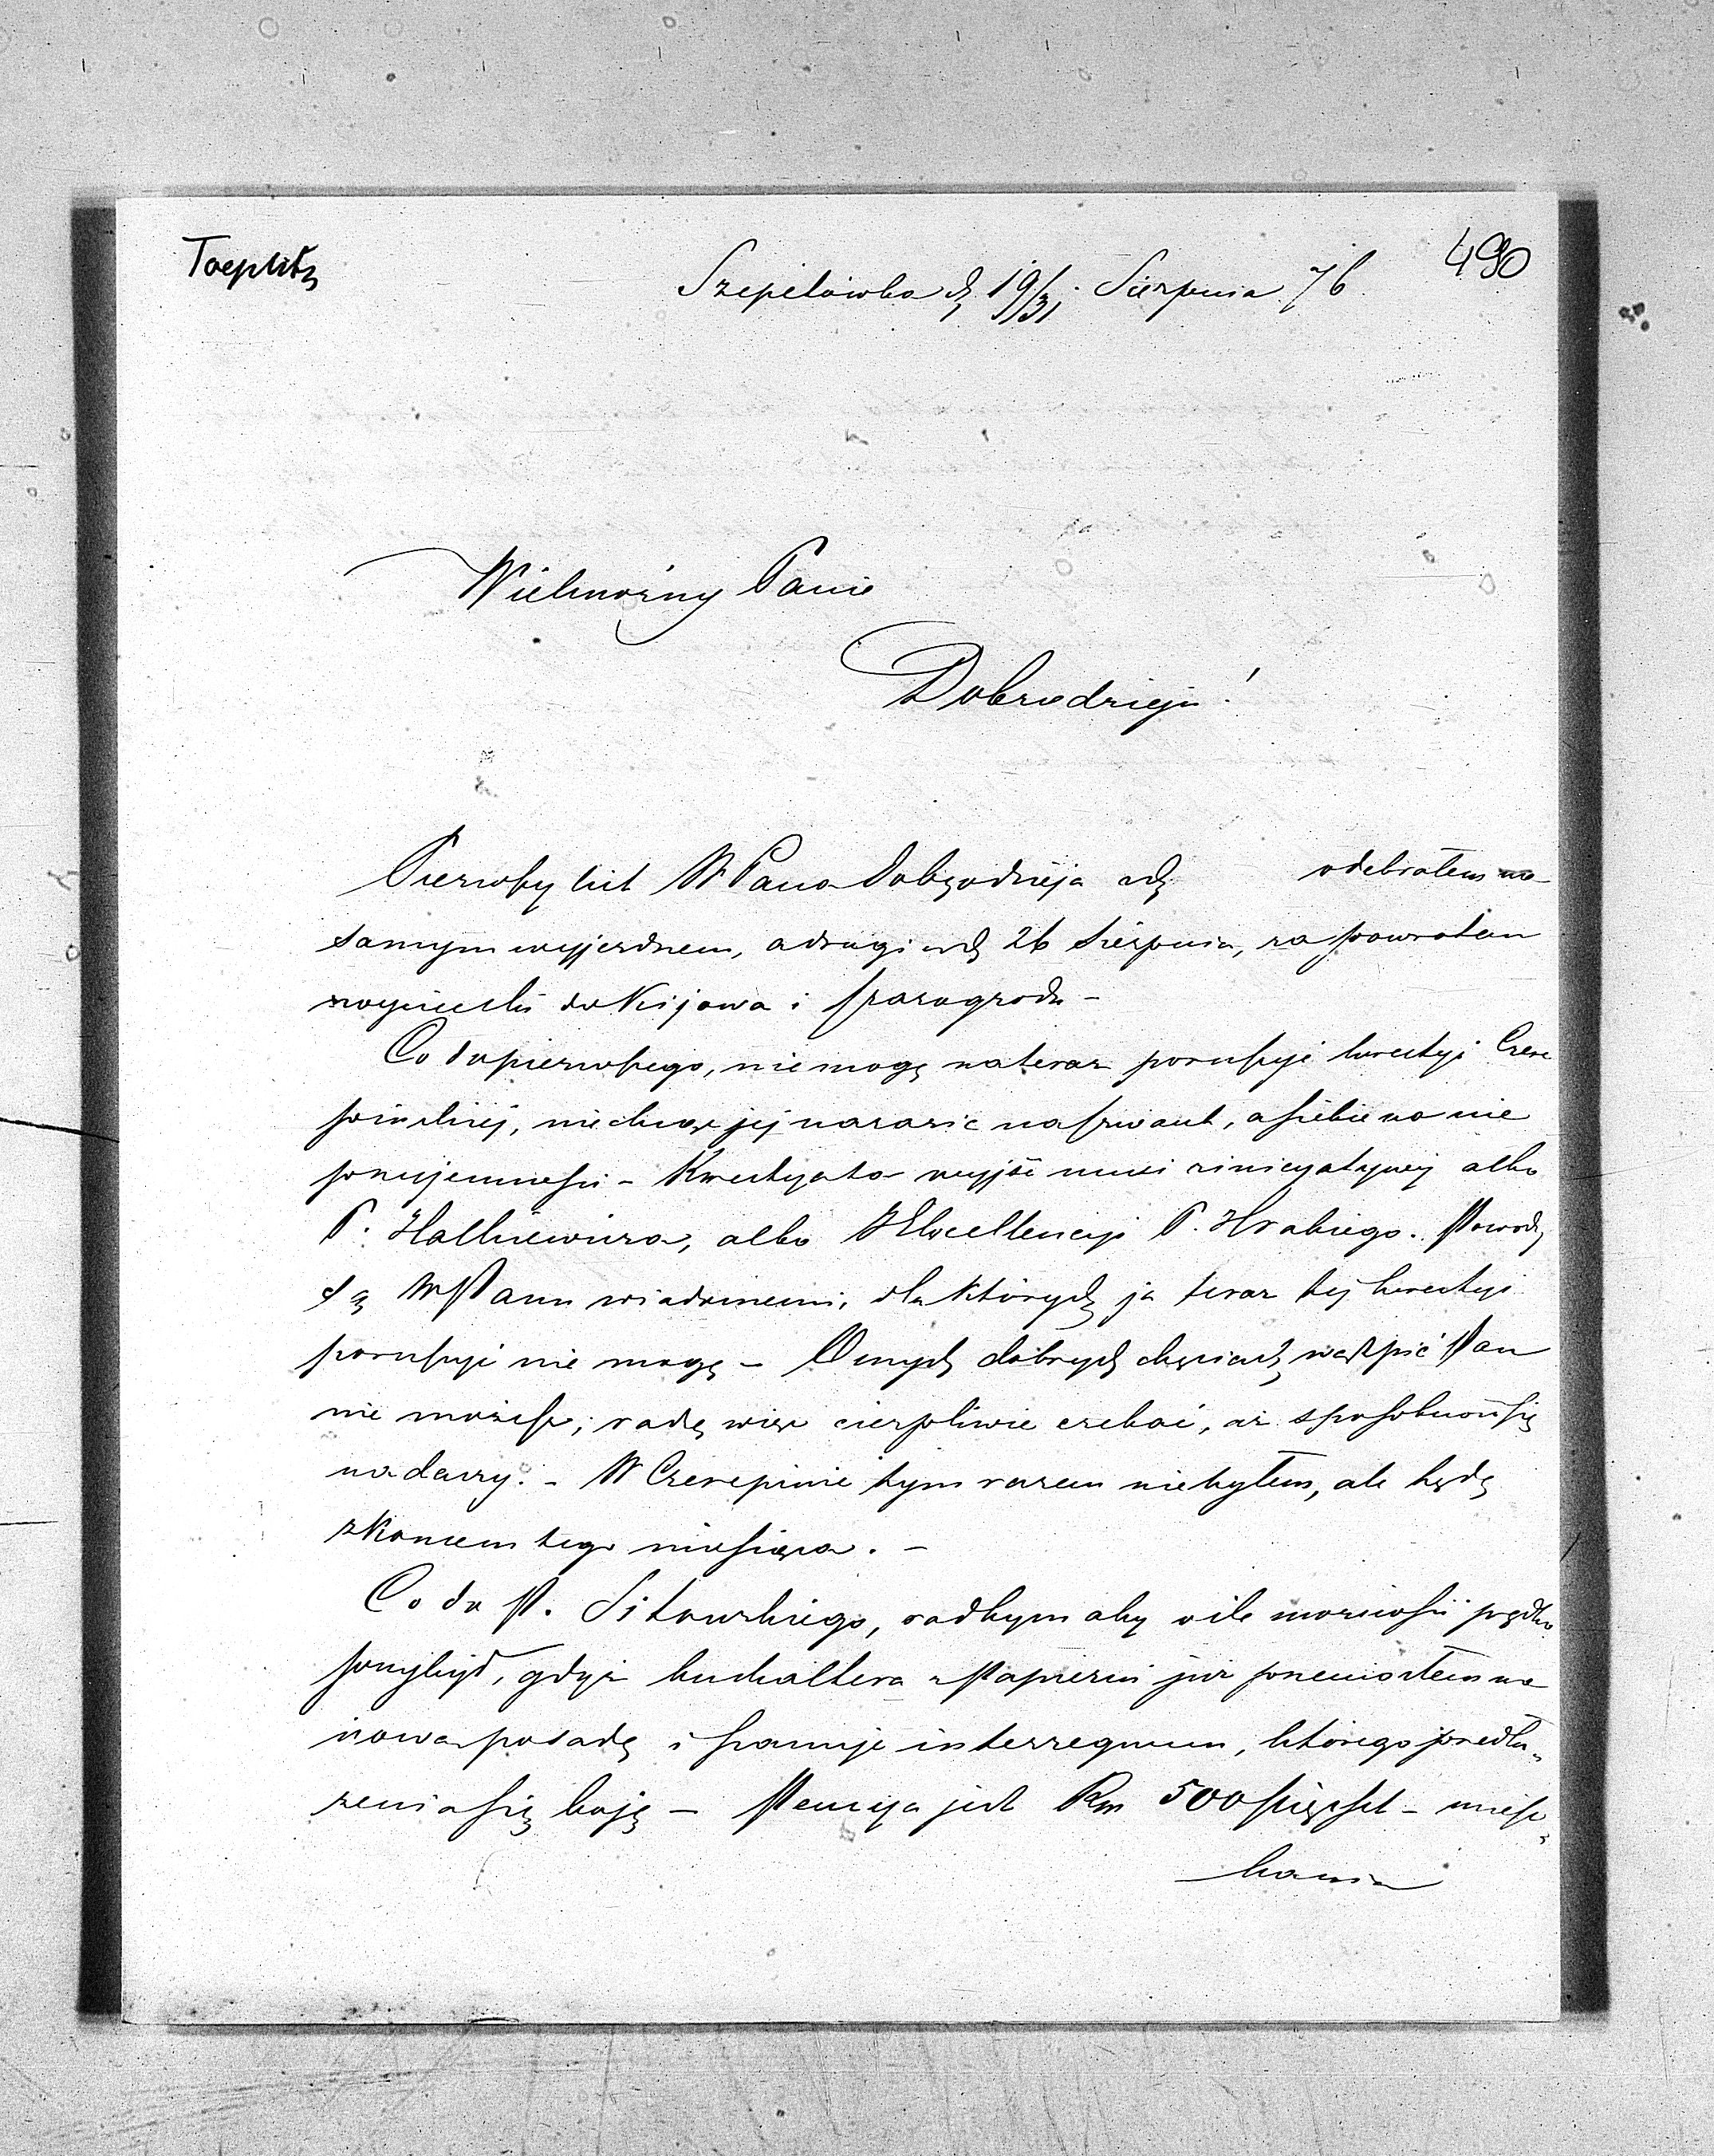 Toeplitz
490
Szepetówka d. 19/31. Sierpnia 76
Wielmożny Panie
Dobrodzieju!
Pierwszy list WPana Dobrodzieja z d. odebrałem na
samym wyjezdnem, a drugi z d. 26 Sierpnia, za powrotem
z wycieczki do Kijowa i
Co do pierwszego, nie mogę na teraz poruszyć kwestyi Czere
pińskiej, nie chcąc jej narazić na szwank, a siebie na nie
przyjemności – Kwestya ta wyjść musi z inicyatywy albo
P. Halkiewicza, albo JEkscellencyi P. Hrabiego. Powody
są WPanu wiadomemi, dla których ja teraz tej kwestyi
poruszyć nie mogę – O mych dobrych chęciach wątpić Pan
nie możesz; radzę więc cierpliwie czekać, aż sposobność się
nadarzy. – W Czerepinie tym razem nie byłem, ale będę
z końcem tego miesiąca. –
Co do P. Sitowskiego, radbym aby o ile możności prędko
przybył, gdyż buchaltera z Papierni już przeniosłem na
nową posadę i panuje interregnum, którego przedłu-
żenia się boję – Pensya jest Rsr 500 pięćset – miesz-
kania